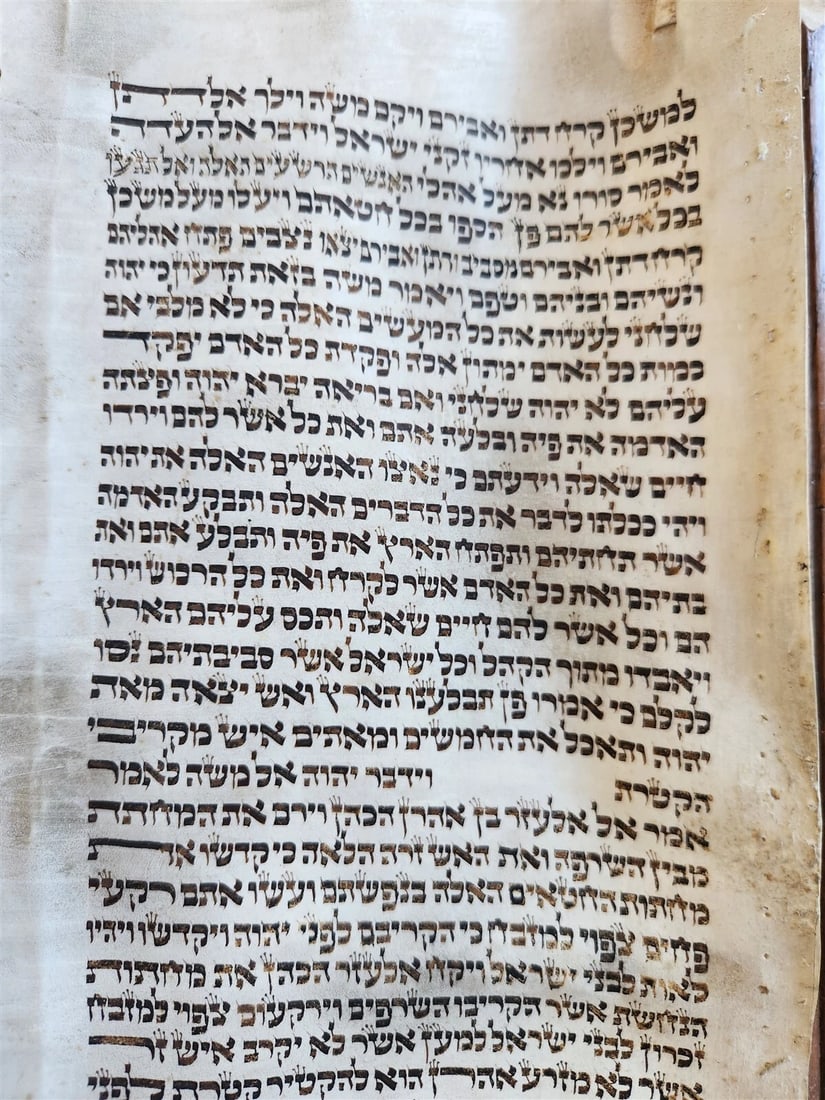 למשכן קרח דתן ואבירם ויקם משה וילך אל דתן
ואבירם וילכו אחריו זקני ישראל וידבר אל העדה
לאמר סורו נא מעל אהלי האנשים הרשעים האלה ואל תגעו
בכל אשר להם פן תספו בכל חטאתם ויעלו מעל משכן
קרח דתן ואבירם מסביב ודתן ואבירם יצאו נצבים פתח אהליהם
ונשיהם ובניהם וטפם ויאמר משה בזאת תדעון כי יהוה
שלחני לעשות את כל המעשים האלה כי לא מלבי אם
כמות כל האדם ימתון אלה ופקדת כל האדם יפקד
עליהם לא יהוה שלחני ואם בריאה יברא יהוה ופצתה
האדמה את פיה ובלעה אתם ואת כל אשר להם וירדו
חיים שאלה וידעתם כי נאצו האנשים האלה את יהוה
ויהי ככלתו לדבר את כל הדברים האלה ותבקע האדמה
אשר תחתיהם ותפתח הארץ את פיה ותבלע אתם ואת
בתיהם ואת כל האדם אשר לקרח ואת כל הרכוש וירדו
הם וכל אשר להם חיים שאלה ותכס עליהם הארץ
ויאבדו מתוך הקהל וכל ישראל אשר סביבתיהם נסו
לקלם כי אמרו פן תבלענו הארץ ואש יצאה מאת
יהוה ותאכל את החמשים ומאתים איש מקריבי
הקטרת וידבר יהוה אל משה לאמר
אמר אל אלעזר בן אהרן הכהן וירם את המחתת
מבין השרפה ואת האש זרה הלאה כי קדשו את
מחתות החטאים האלה בנפשתם ועשו אתם רקעי
פחים צפוי למזבח כי הקריבם לפני יהוה ויקדשו ויהיו
לאות לבני ישראל ויקח אלעזר הכהן את מחתות
הנחשת אשר הקריבו השרפים וירקעום צפוי למזבח
זכרון לבני ישראל למען אשר לא יקרב איש זר
אשר לא מזרע אהרן הוא להקטיר קטרת לפני